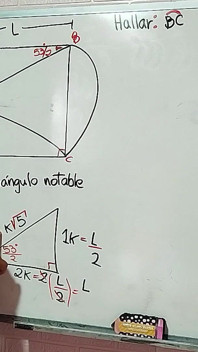 L
Hallar: BC
B
53/2
C
ángulo notable
K√5
1K = L/2
53/2
2K = 2(L/2) = L